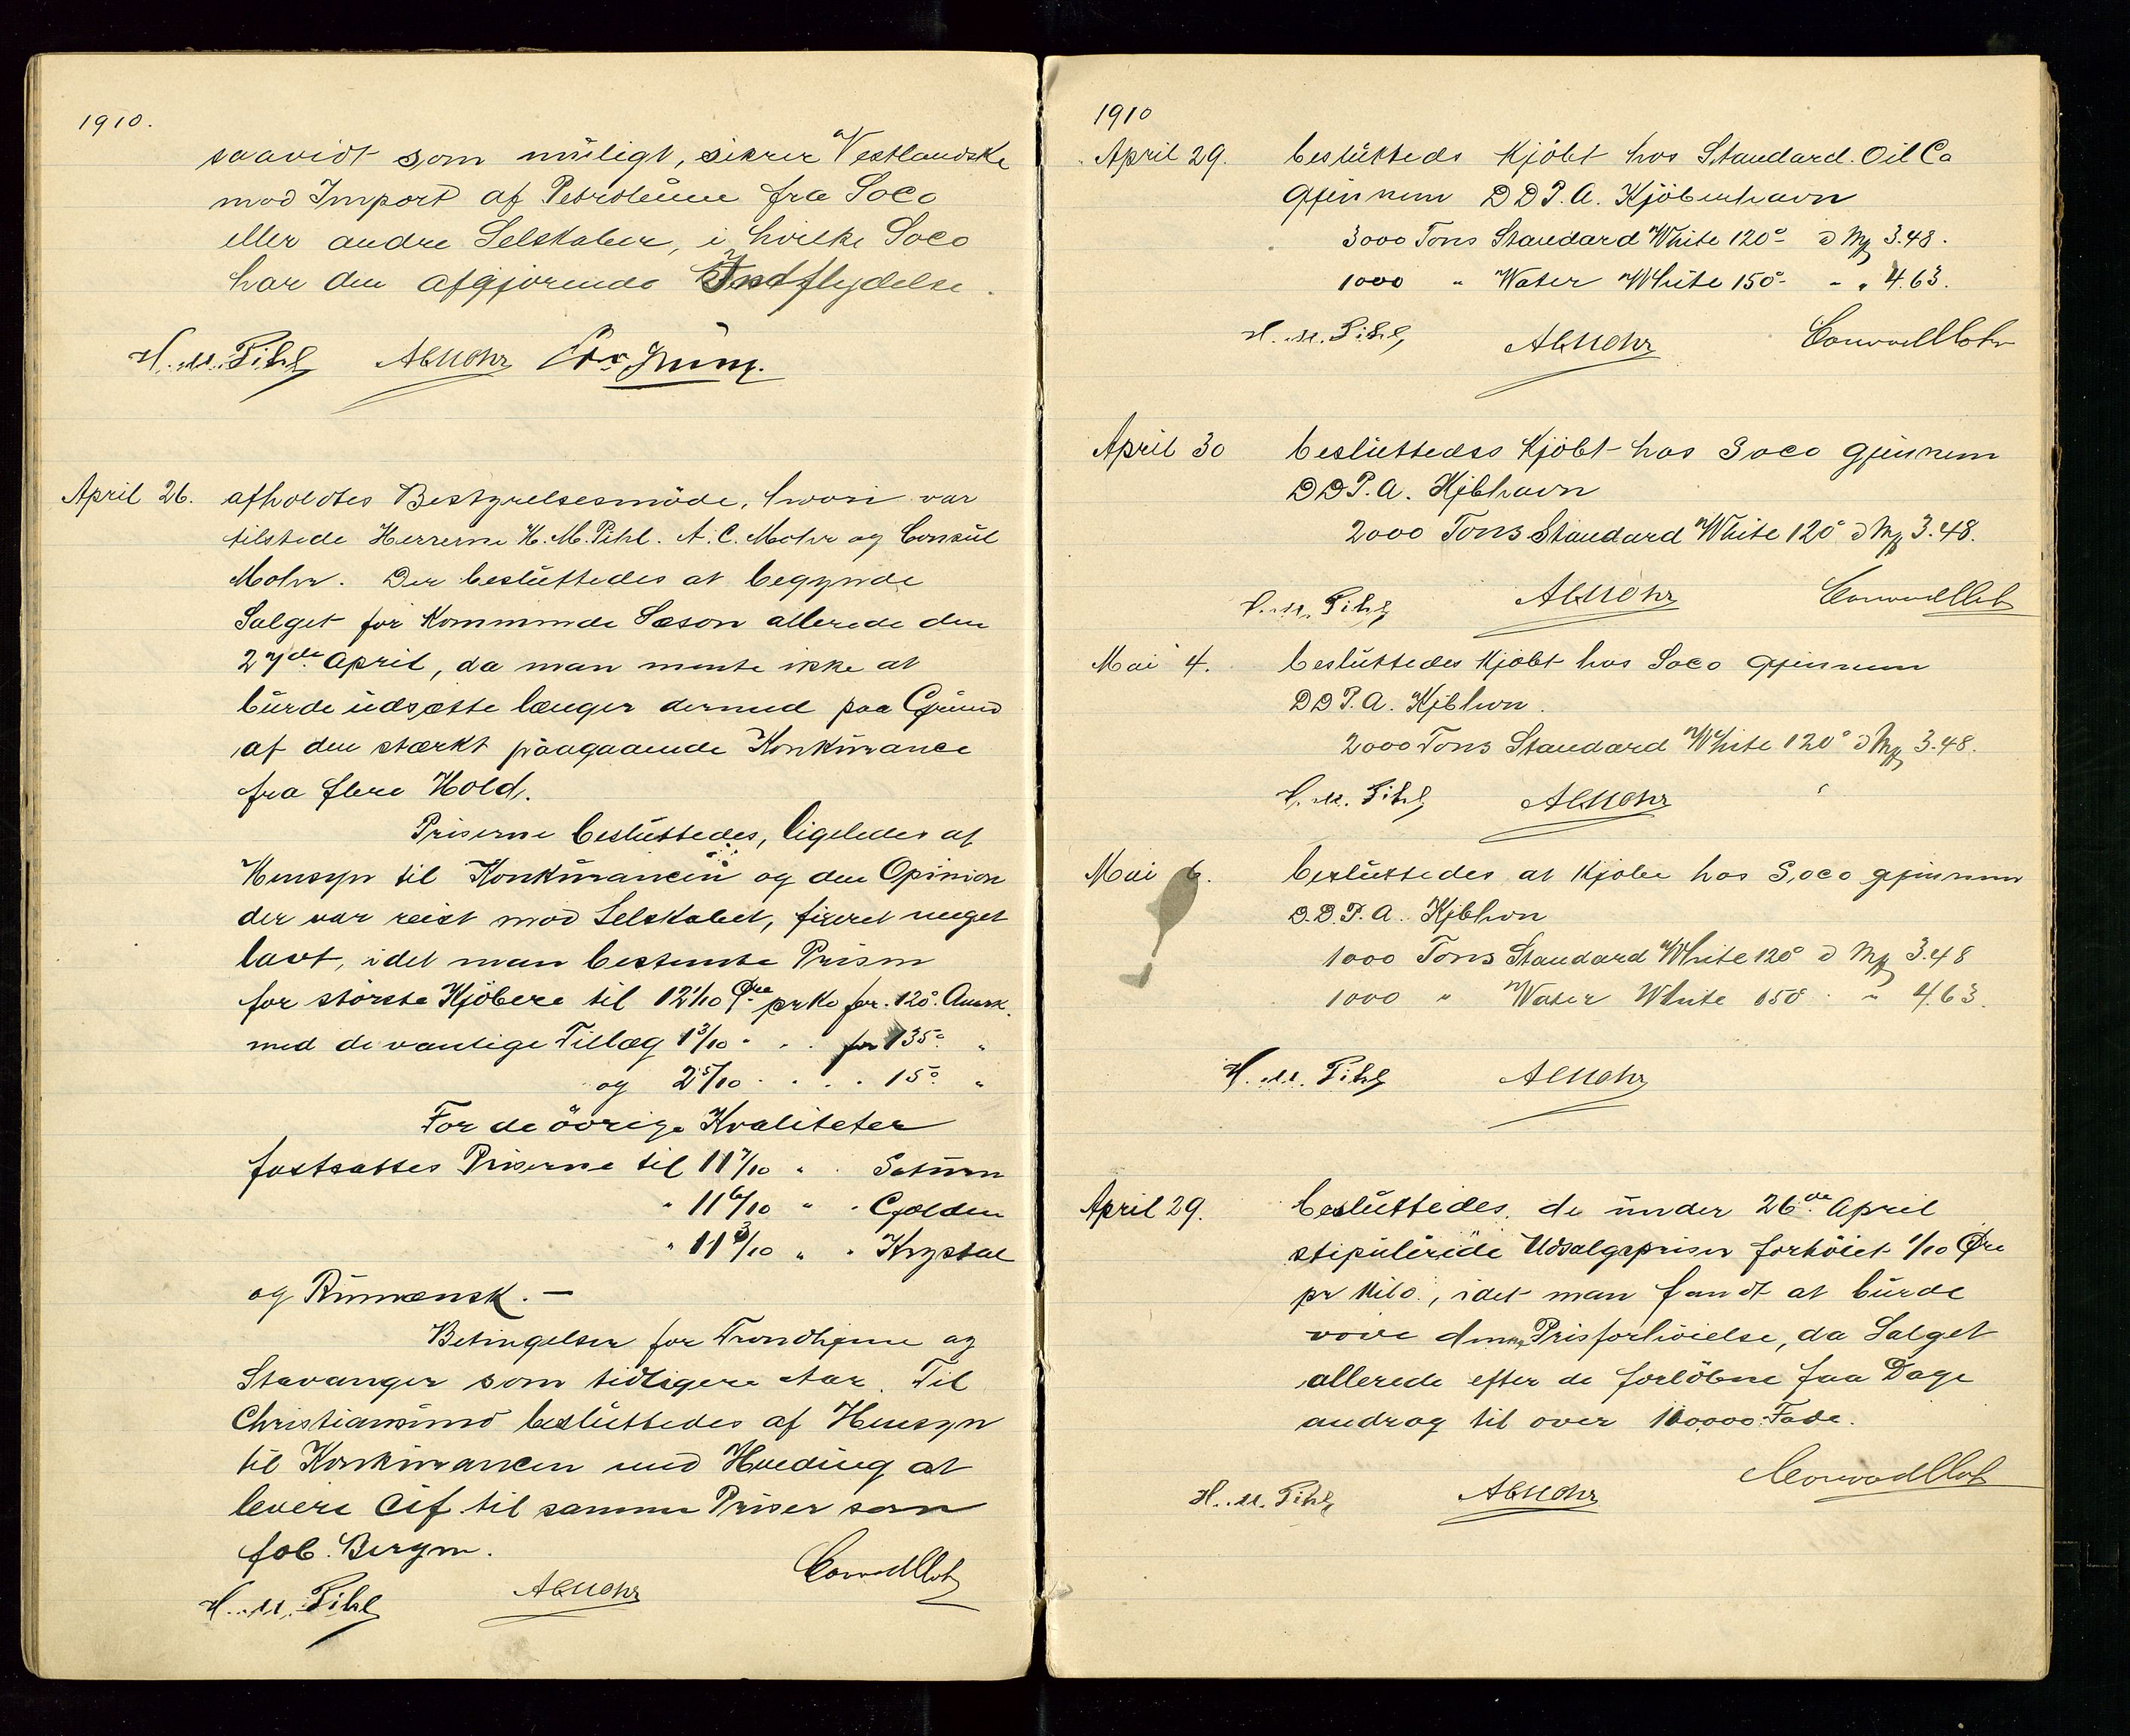 1910.
saavidt som muligt, sikrer Vestlandske
mod Import af Petroleum fra Soco
eller andre Selskaber, i hvilke Soco
har den afgjørende Indflydelse.
H. M. Pihl ACMohr
April 26. afholdtes Bestyrelsesmöde, hvori var
tilstede Herrerne H. M. Pihl. A. C. Mohr og Consul
Mohr. Der besluttedes at begynde
Salget for kommende Sæson allerede den
27de April, da man mente ikke at
burde udsætte længer dermed paa Grund
af den stærkt paagaaende Konkurance
fra flere Hold.
Priserne besluttedes, ligeledes af
Hensyn til Konkurancen og den Opinion
der var reist mod Selskabet, fixeret meget
lavt, idet man bestemte Prisen
for störste Kjöbere til 12 1/10 Øre pr Ko for 120° Amrk.
med de vanlige Tillæg 1 3/10 " . . for 135° "
og 2 5/10 . . . . 15° "
For de övrige Kvaliteter
fastsattes Priserne til 11 7/10 " . Saturn
" 11 6/10 " . Golden
" 11 3/10 " " Krystal
og Rumænsk. —
Betingelser for Trondhjem og
Stavanger som tidligere Aar. Til
Christiansund besluttedes af Hensyn
til Konkurancen med Høeding at
levere Cif til samme Priser som
fob. Bergen.
H. M. Pihl ACMohr Conrad Mohr
1910
April 29. besluttedes kjöbt hos Standard Oil Co
gjennem D D P. A. Kjöbenhavn
3000 Tons Standard White 120° a Mk 3.48.
1000 " Water White 150° - " 4.63.
H. M. Pihl ACMohr Conrad Mohr
April 30 besluttedes Kjöbt hos Soco gjennem
D D P. A. Kjbhavn
2000 Tons Standard White 120° a Mk 3.48.
H. M. Pihl ACMohr Conrad Mohr
Mai 4. besluttedes kjøbt hos Soco gjennem
D D P. A. Kjbhvn.
2000 Tons Standard White 120° a Mk 3.48.
H. M. Pihl ACMohr
Mai 6. besluttedes at kjøbe hos Soco gjennem
D. D. P. A. Kjbhvn
1000 Tons Standard White 120° a Mk 3.48
1000 " Water White 150° . " 4.63.
H. M. Pihl ACMohr
April 29. besluttedes, de under 26de April
stipulerede Udsalgspriser forhöiet 1/10 Øre
pr Kilo, idet man fandt at burde
vove denne Prisforhöielse, da Salget
allerede efter de forlöbne faa Dage
androg til over 10000 Fade.
H. M. Pihl ACMohr Conrad Mohr